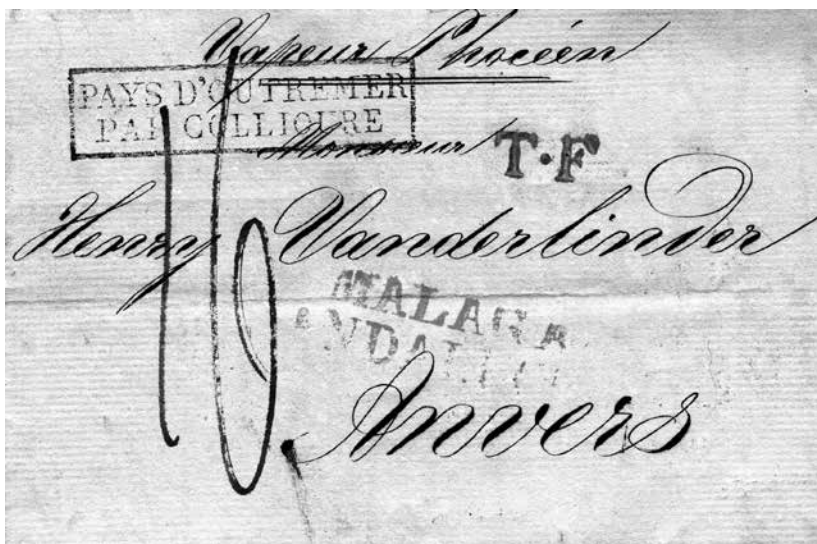 Vapeur Phocéen
PAYS D'OUTREMER
PAR COLLIOURE
Monsieur
T·F
Henry Vanderlinder
16
MALAGA
ANDALUCIA
Anvers